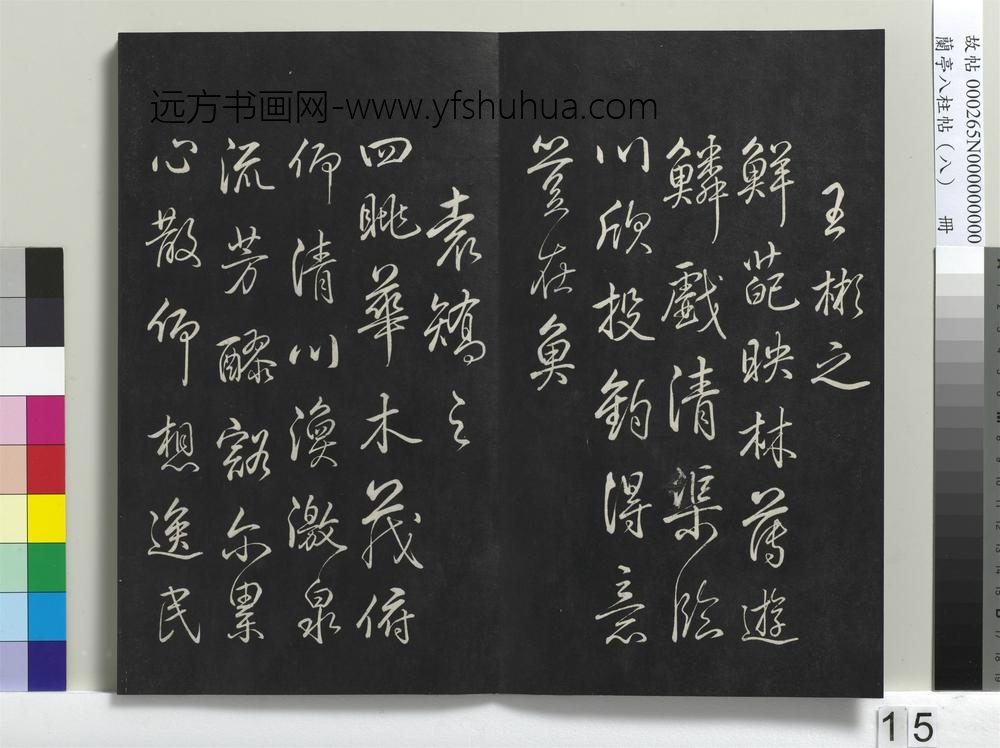 故帖 000265N000000000
蘭亭八柱帖（八） 冊
远方书画网-www.yfshuhua.com
王彬之
鮮葩映林薄遊
鱗戲清渠臨
川欣投釣得意
豈在魚
袁矯之
四眺華木茂俯
仰清川渙激泉
流芳醪豁尔累
心散仰想逸民
15